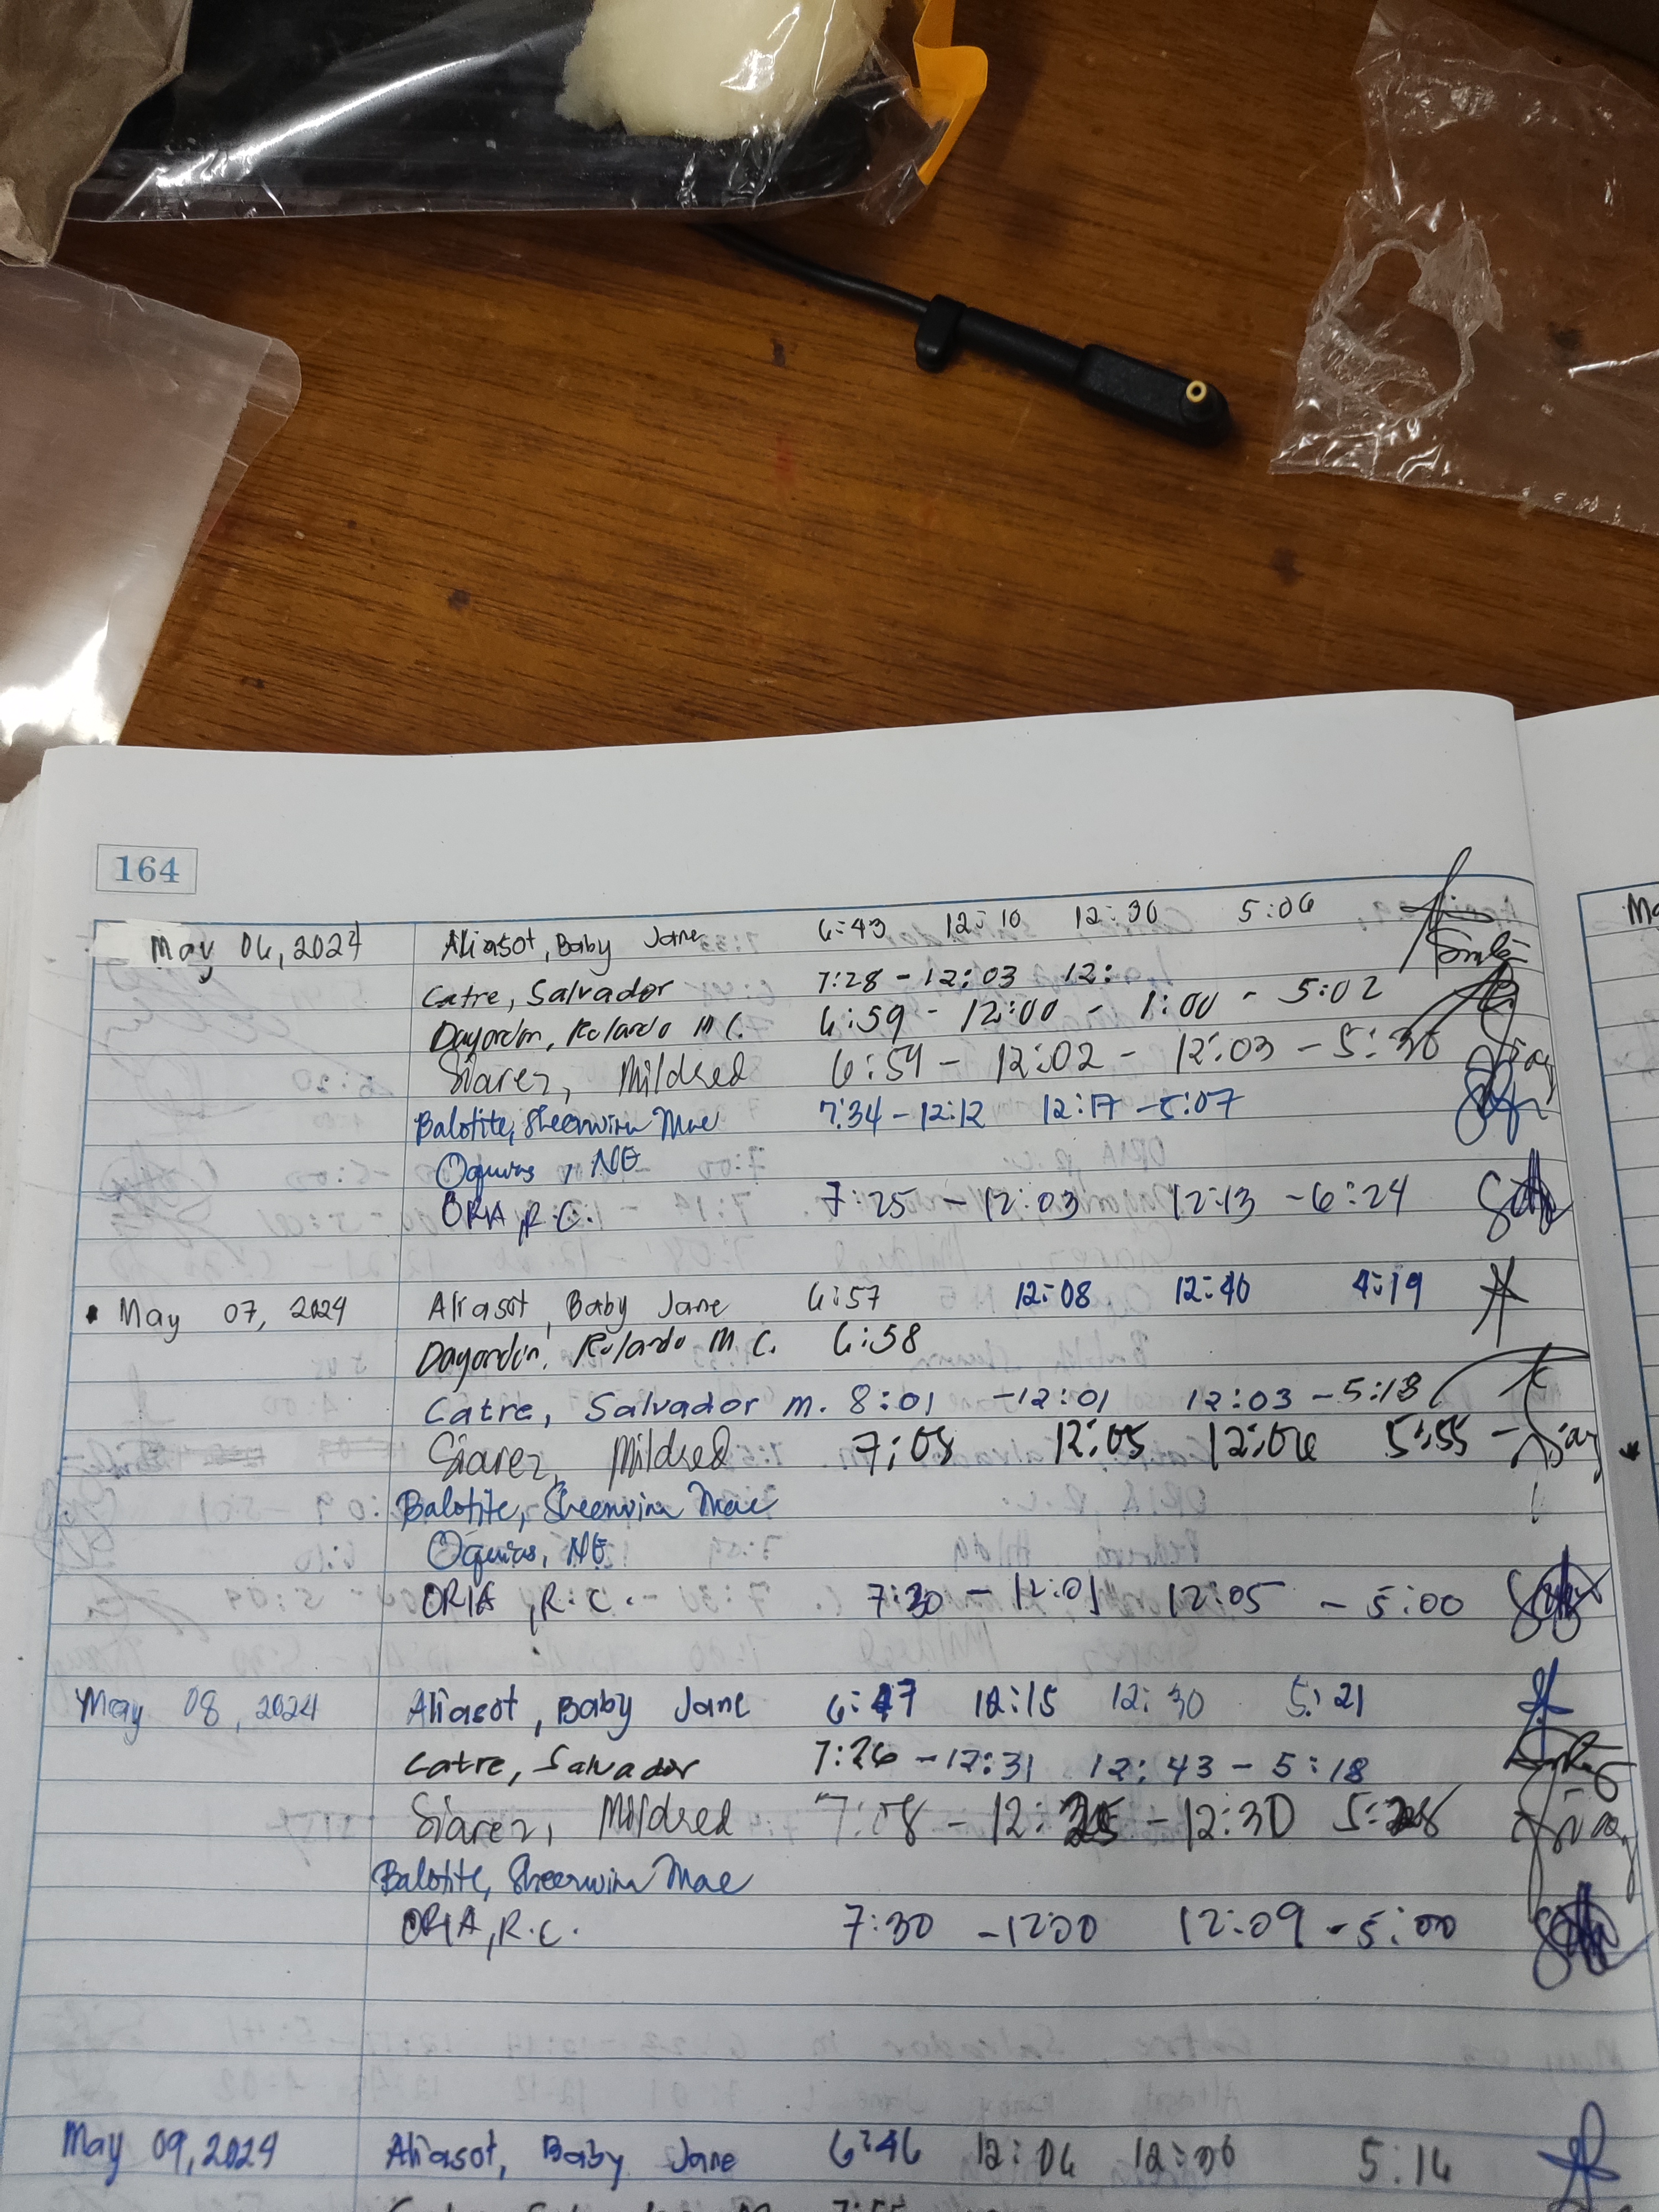 164
May 06, 2024 Aliasot, Baby Jane 6:43 12:10 12:30 5:06
Catre, Salvador 7:28 - 12:03 12:
Dayondon, Rolando M C. 6:59 - 12:00 - 1:00 - 5:02
Siarez, Mildred 6:59 - 12:02 - 12:03 - 5:30
Balotite, Sheenwina Mae 7:34 - 12:12 12:17 - 5:07
Oquias, NE
ORIA, R.C. 7:25 - 12:03 12:13 - 6:24
May 07, 2024 Aliasot, Baby Jane 6:57 12:08 12:40 4:19
Dayondon, Rolando M C. 6:58
Catre, Salvador M. 8:01 - 12:01 12:03 - 5:13
Siarez, Mildred 7:08 12:05 12:06 5:55 -
Balotite, Sheenwina Mae
Oquias, NE
ORIA, R.C. 7:30 - 12:01 12:05 - 5:00
May 08, 2024 Aliasot, Baby Jane 6:47 12:15 12:30 5:21
Catre, Salvador 7:26 - 12:31 12:43 - 5:18
Siarez, Mildred 7:08 - - 12:30
Balotite, Sheenwina Mae
ORIA, R.C. 7:30 - 12:00 12:09 - 5:00
May 09, 2024 Aliasot, Baby Jane 6:46 12:06 12:30 5:16
Catre, Salvador M 7:55